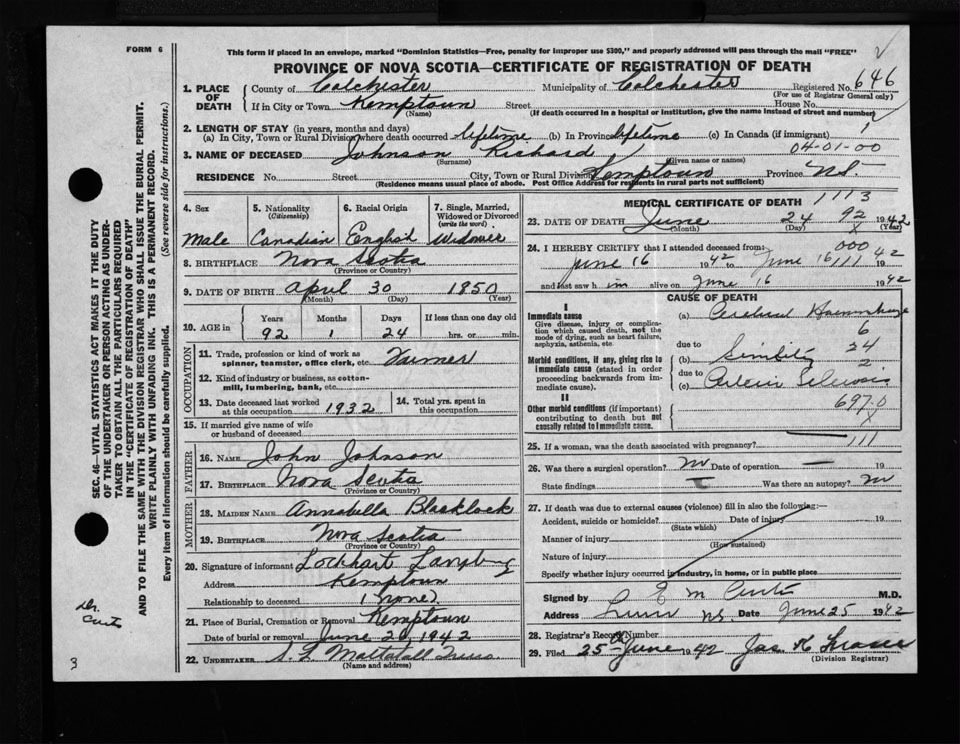 FORM 6
This form if placed in an envelope, marked "Dominion Statistics—Free, penalty for improper use $300," and properly addressed will pass through the mail "FREE"
PROVINCE OF NOVA SCOTIA—CERTIFICATE OF REGISTRATION OF DEATH
1. PLACE OF DEATH
County of Colchester Municipality of Colchester Registered No. 646
(For use of Registrar General only)
If in City or Town Kemptown Street House No.
(Name) (If death occurred in a hospital or institution, give the name instead of street and number)
2. LENGTH OF STAY (in years, months and days)
(a) In City, Town or Rural Division where death occurred lifetime (b) In Province lifetime (c) In Canada (if immigrant)
04-01-00
3. NAME OF DECEASED Johnson Richard
(Surname) (Given name or names)
RESIDENCE No. Street City, Town or Rural Division Kemptown Province N.S.
(Residence means usual place of abode. Post Office Address for residents in rural parts not sufficient)
4. Sex Male
5. Nationality (Citizenship) Canadian
6. Racial Origin English
7. Single, Married, Widowed or Divorced (write the word) Widower
8. BIRTHPLACE Nova Scotia
(Province or Country)
9. DATE OF BIRTH April 30 1850
(Month) (Day) (Year)
10. AGE in Years Months Days If less than one day old
92 1 24 hrs. or min.
OCCUPATION
11. Trade, profession or kind of work as spinner, teamster, office clerk, etc. Farmer
12. Kind of industry or business, as cotton-mill, lumbering, bank, etc.
13. Date deceased last worked at this occupation 1932
14. Total yrs. spent in this occupation
15. If married give name of wife or husband of deceased
FATHER
16. NAME John Johnson
17. BIRTHPLACE Nova Scotia
(Province or Country)
MOTHER
18. MAIDEN NAME Annabella Blacklock
19. BIRTHPLACE Nova Scotia
(Province or Country)
20. Signature of informant Lockhart
Address Kemptown
Relationship to deceased (none)
21. Place of Burial, Cremation or Removal Kemptown
Date of burial or removal June 1942
22. UNDERTAKER Mattatall Truro.
(Name and address)
MEDICAL CERTIFICATE OF DEATH 1113
23. DATE OF DEATH June 24 92 1942
(Month) (Day)
24. I HEREBY CERTIFY that I attended deceased from:
000
June 16 1942 to June 16 111 1942
and last saw him alive on June 16 1942
CAUSE OF DEATH
I
Immediate cause
Give disease, injury or complication which caused death, not the mode of dying, such as heart failure, asphyxia, asthenia, etc.
(a) Cerebral Haemorrhage
6
due to
24
Morbid conditions, if any, giving rise to immediate cause (stated in order proceeding backwards from immediate cause).
(b) Senility
2
due to
(c) Arterio Sclerosis
II
697-0
Other morbid conditions (if important) contributing to death but not causally related to immediate cause.
111
25. If a woman, was the death associated with pregnancy?
26. Was there a surgical operation? no Date of operation — 19
State findings Was there an autopsy? no
27. If death was due to external causes (violence) fill in also the following:
Accident, suicide or homicide? Date of injury 19
(State which)
Manner of injury
(How sustained)
Nature of injury
Specify whether injury occurred in industry, in home, or in public place
Signed by E M Curtis M.D.
Address Truro N.S. Date June 25 1942
28. Registrar's Record Number
29. Filed 25 June 1942 Jas K
(Division Registrar)
SEC. 46—VITAL STATISTICS ACT MAKES IT THE DUTY OF THE UNDERTAKER OR PERSON ACTING AS UNDERTAKER TO OBTAIN ALL THE PARTICULARS REQUIRED IN THE "CERTIFICATE OF REGISTRATION OF DEATH" AND TO FILE THE SAME WITH THE DIVISION REGISTRAR WHO SHALL ISSUE THE BURIAL PERMIT.
WRITE PLAINLY WITH UNFADING INK. THIS IS A PERMANENT RECORD.
Every item of information should be carefully supplied. (See reverse side for instructions.)
Dr. Curtis
3